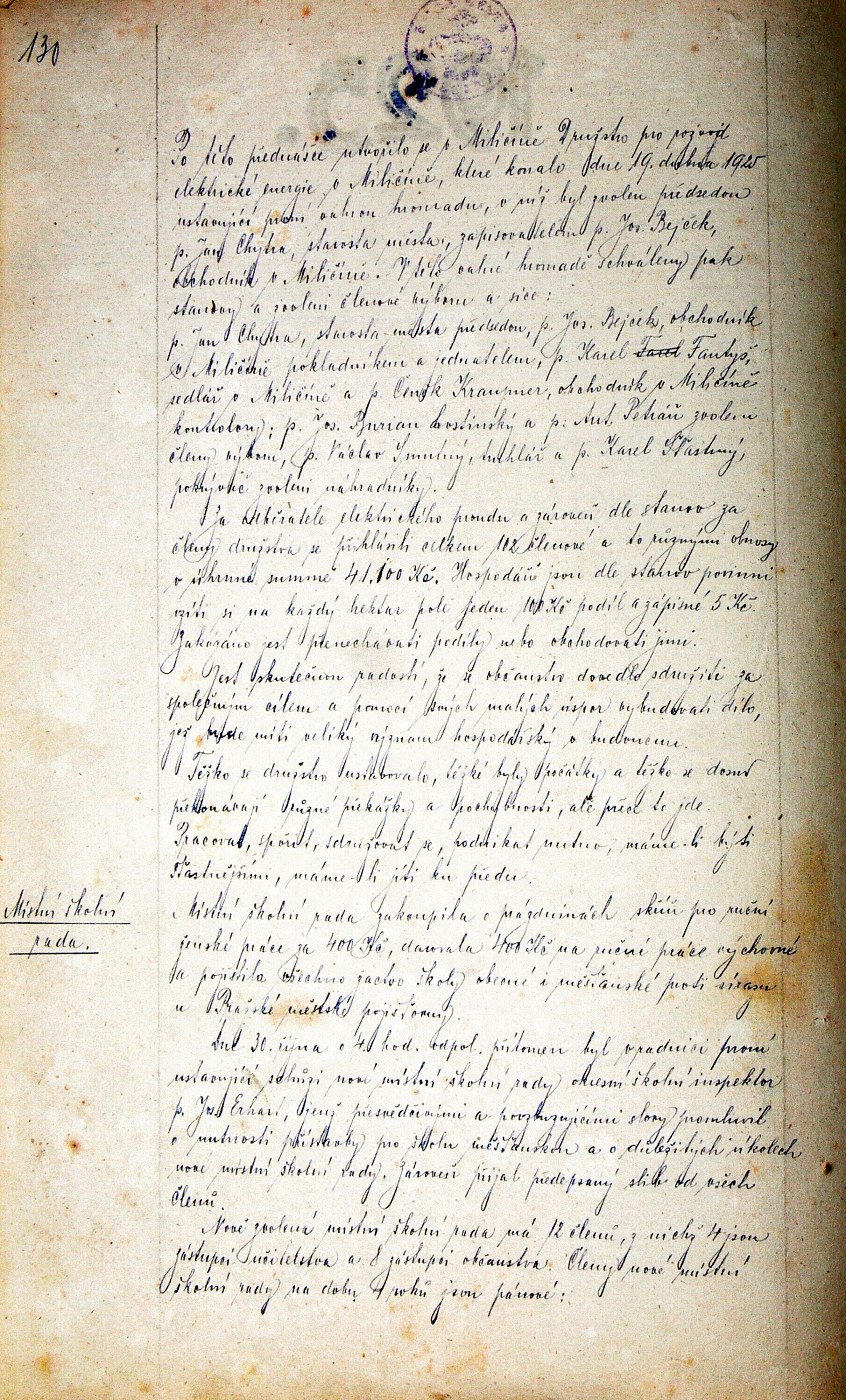 130
Po této přednášce utvořilo se v Miličíně Družstvo pro rozvod
elektrické energie v Miličíně, které konalo dne 19. dubna 1925
ustavující první valnou hromadu, v níž byl zvolen předsedou
p. Jan Chytra, starosta města, zapisovatelem p. Jos. Bejček,
obchodník v Miličíně. V této valné hromadě schváleny pak
stanovy a zvoleni členové výboru a sice:
p. Jan Chytra, starosta města předsedou, p. Jos. Bejček, obchodník
v Miličíně pokladníkem a jednatelem, p. Karel Fantyš,
sedlář v Miličíně a p. Čeněk Kraupner, obchodník v Miličíně
kontrolory; p. Jos. Burian hostinský a p. Ant. Petráň zvoleni
členy výboru, p. Václav Smutný, truhlář a p. Karel Šťastný,
pokrývač zvoleni náhradníky.
Za odběratele elektrického proudu a zároveň dle stanov za
členy družstva se přihlásili celkem 112 členové a to různými obnosy
v úhrnné summě 41.100 Kč. Hospodáři jsou dle stanov povinni
vzíti si na každý hektar polí jeden 100 Kč podíl a zápisné 5 Kč.
Zakázáno jest přenechávati podíly nebo obchodovati jimi.
Jest skutečnou radostí, že se občanstvo dovedlo sdružiti za
společným cílem a pomocí svých malých úspor vybudovati dílo,
jež bude míti veliký význam hospodářský v budoucnu.
Těžko se družstvo ustavovalo, těžké byly počátky a těžko se dosud
překonávají různé překážky a pochybnosti, ale přece to jde.
Pracovat, spořit, sdružovat se, podnikat nutno, máme-li býti
šťastnějšími, máme-li jíti ku předu.
Místní školní
rada.
Místní školní rada zakoupila o prázdninách skříň pro ruční
ženské práce za 400 Kč, darovala 400 Kč na ruční práce výchovné
a pojistila všechno žactvo školy obecné i měšťanské proti úrazu
u Pražské městské pojišťovny.
Dne 30. října o 4. hod. odpol. přítomen byl v radnici první
ustavující schůzi nové místní školní rady okresní školní inspektor
p. Jos. Erhart, jenž přesvědčivými a povzbuzujícími slovy promluvil
o nutnosti přístavby pro školu měšťanskou a o důležitých úkolech
nové místní školní rady. Zároveň přijal předepsaný slib od všech
členů.
Nově zvolená místní školní rada má 12 členů, z nichž 4 jsou
zástupci učitelstva a 8 zástupci občanstva. Členy nové místní
školní rady na dobu 4 roků jsou pánové: